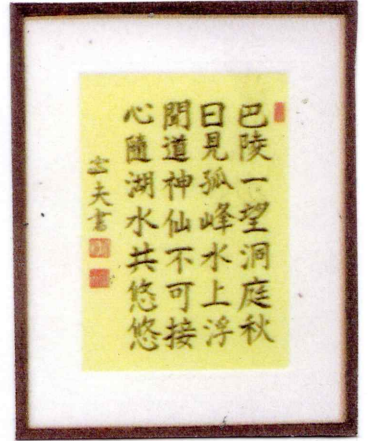 巴陵一望洞庭秋
日見孤峰水上浮
聞道神仙不可接
心隨湖水共悠悠
夫書